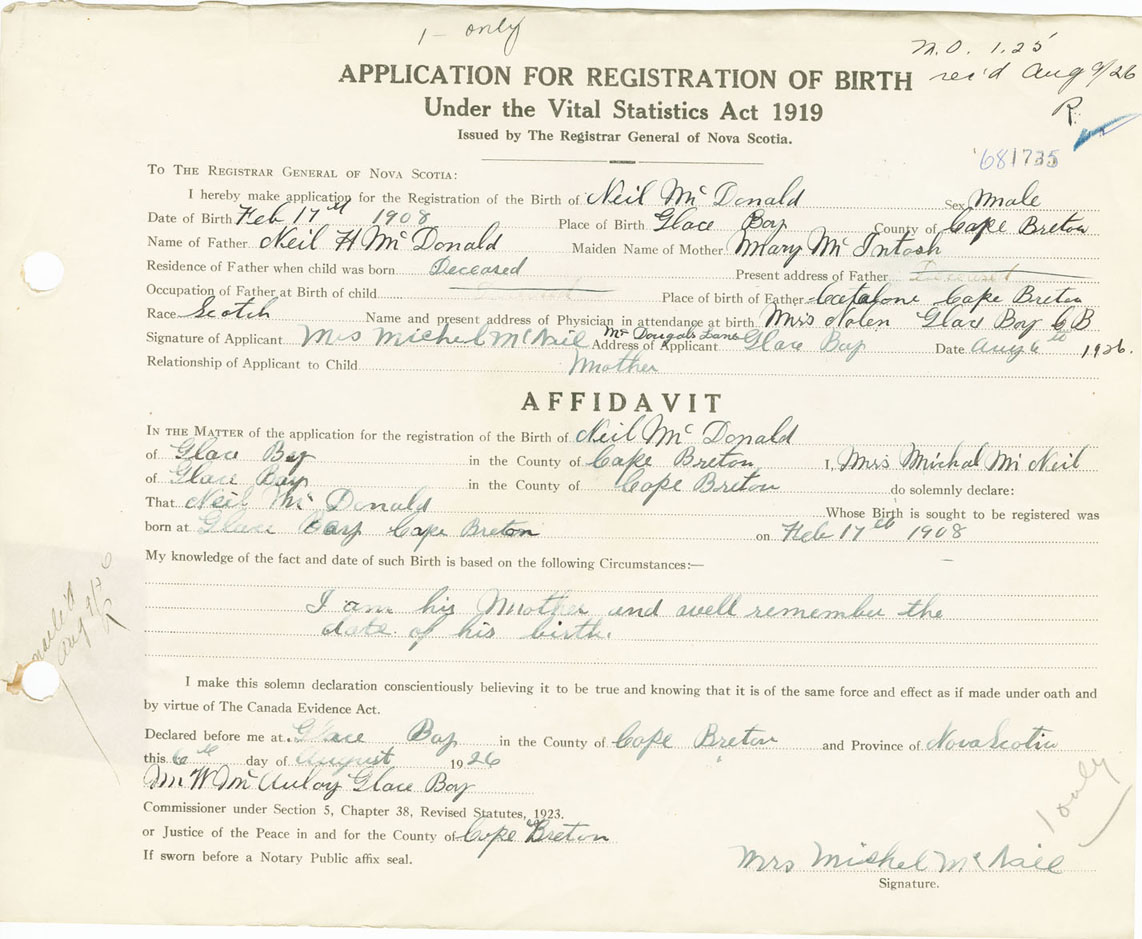 1 - only
M.O. 1.25
rec'd Aug 9/26
R.
APPLICATION FOR REGISTRATION OF BIRTH
Under the Vital Statistics Act 1919
Issued by The Registrar General of Nova Scotia.
681735
TO THE REGISTRAR GENERAL OF NOVA SCOTIA:
I hereby make application for the Registration of the Birth of Neil Mc Donald Sex Male
Date of Birth Feb 17th 1908 Place of Birth Glace Bay County of Cape Breton
Name of Father Neil H Mc Donald Maiden Name of Mother Mary Mc Intosh
Residence of Father when child was born Deceased Present address of Father Deceased
Occupation of Father at Birth of child Place of birth of Father Catalone Cape Breton
Race Scotch Name and present address of Physician in attendance at birth Mrs Nolen Glace Bay C B
Signature of Applicant Mrs Michel McNeil Address of Applicant Mc Dougals Lane Glace Bay Date Aug 6th 1926.
Relationship of Applicant to Child Mother
AFFIDAVIT
IN THE MATTER of the application for the registration of the Birth of Neil Mc Donald
of Glace Bay in the County of Cape Breton I, Mrs Michal Mc Neil
of Glace Bay in the County of Cape Breton do solemnly declare:
That Neil Mc Donald Whose Birth is sought to be registered was
born at Glace Bay Cape Breton on Feb 17th 1908
My knowledge of the fact and date of such Birth is based on the following Circumstances:—
I am his Mother and well remember the
date of his birth.
mailed
Aug
R
I make this solemn declaration conscientiously believing it to be true and knowing that it is of the same force and effect as if made under oath and
by virtue of The Canada Evidence Act.
Declared before me at Glace Bay in the County of Cape Breton and Province of Nova Scotia
this 6th day of August 1926
M W McAuloy Glace Bay
Commissioner under Section 5, Chapter 38, Revised Statutes, 1923.
or Justice of the Peace in and for the County of Cape Breton
If sworn before a Notary Public affix seal.
1 only
Mrs Michel Mc Neil
Signature.